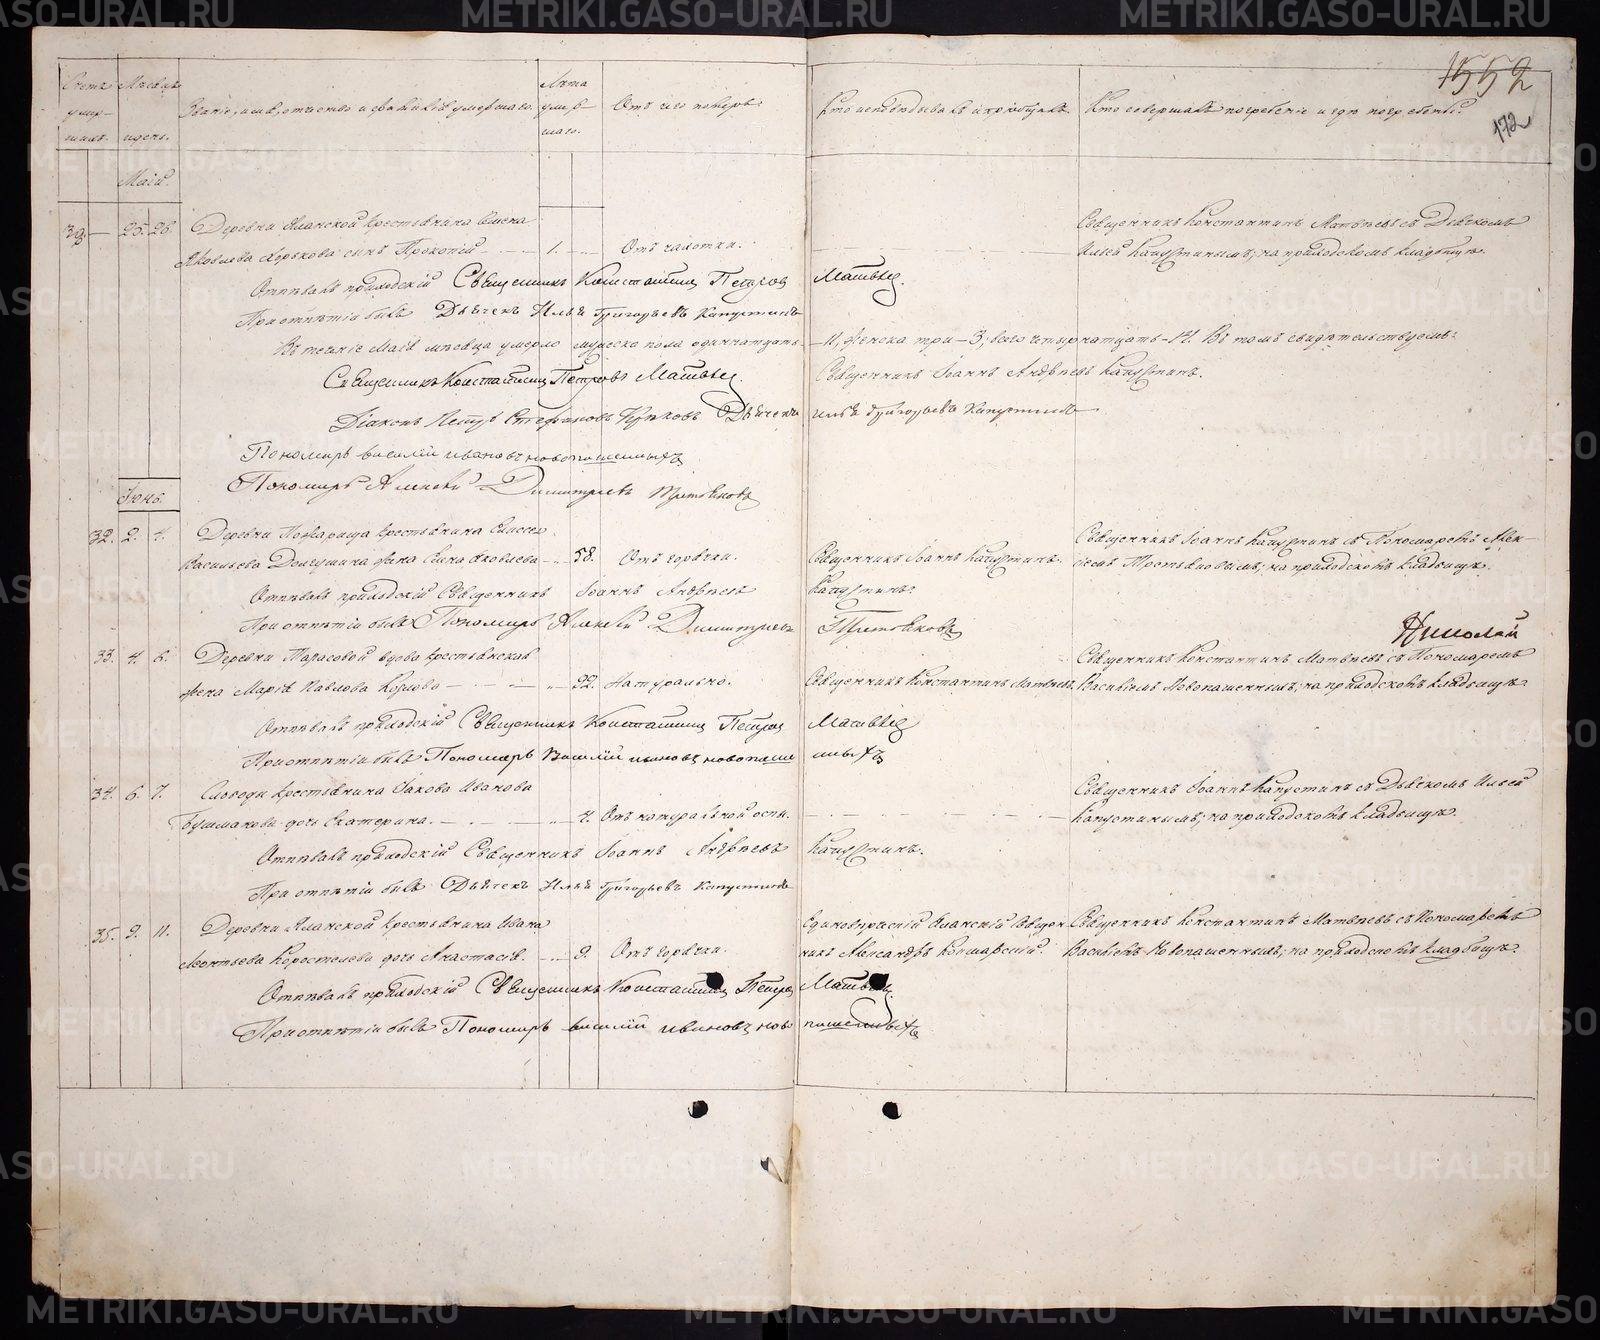 1552
172
Счетъ умершихъ.
Мѣсяцъ и день.
Званіе, имя, отчество и фамилія умершаго.
Лѣта умершаго.
Отъ чего померъ.
Кто исповѣдывалъ и пріобщалъ.
Кто совершалъ погребеніе и гдѣ погребены.
Маій.
25. 26. Деревни Яланской крестьянина
Яковлева Хорькова сынъ Прокопій 1. Отъ чахотки.
Священникъ Константинъ Матвѣевъ съ Дьячкомъ
Ильей Капустинымъ; на приходскомъ кладбищѣ.
Отпѣвалъ приходскій Священникъ Константинъ Петровъ Матвѣевъ
При отпѣтіи былъ Дьячекъ Илья Григорьевъ Капустинъ
Въ теченіе Маія мѣсяца умерло мужеска пола одиннатцать – 11, женска три – 3, всего четырнатцать – 14. Въ томъ свидѣтельствуемъ:
Священникъ Константинъ Петровъ Матвѣевъ Священникъ Іоаннъ Андреевъ Капустинъ.
Діаконъ Петръ Стефановъ Дьячекъ Илья Григорьевъ Капустинъ
Пономарь Василій Ивановъ Новопашенныхъ
Пономарь Алексѣй Димитріевъ Третьяковъ
Іюнь.
32. 2. 4. Деревни Пожарища крестьянина
Васильева Долгушина жена Яковлева 58. Отъ горячки.
Священникъ Іоаннъ Капустинъ.
Священникъ Іоаннъ Капустинъ съ Пономаремъ Алек-
сіемъ Третьяковымъ; на приходскомъ кладбищѣ.
Отпѣвалъ приходскій Священникъ Іоаннъ Андреевъ Капустинъ.
При отпѣтіи былъ Пономарь Алексѣй Димитріевъ Третьяковъ
Николай
33. 4. 6. Деревни Тарасовой вдова крестьянская
жена Марія Павлова 92. Натурально.
Священникъ Константинъ Матвѣевъ.
Священникъ Константинъ Матвѣевъ съ Пономаремъ
Василіемъ Новопашеннымъ; на приходскомъ кладбищѣ.
Отпѣвалъ приходскій Священникъ Константинъ Петровъ Матвѣевъ
При отпѣтіи былъ Пономарь Василій Ивановъ Новопашенныхъ
34. 6. 7. Слободы крестьянина Іакова Иванова
Бушманова дочь Екатерина. 4. Отъ натуральной оспы.
Священникъ Іоаннъ Капустинъ съ Дьячкомъ Ильей
Капустинымъ; на приходскомъ кладбищѣ.
Отпѣвалъ приходскій Священникъ Іоаннъ Андреевъ Капустинъ.
При отпѣтіи былъ Дьячекъ Илья Григорьевъ Капустинъ
35. 9. 11. Деревни Яланской крестьянина Ивана
Леонтьева Коростелева дочь Анастасія. 9. Отъ горячки.
Единовѣрческій Яланскій Священ-
никъ Александръ
Священникъ Константинъ Матвѣевъ съ Пономаремъ
Василіемъ Новопашеннымъ; на приходскомъ кладбищѣ.
Отпѣвалъ приходскій Священникъ Константинъ Петровъ Матвѣевъ
При отпѣтіи былъ Пономарь Василій Ивановъ Новопашенныхъ
METRIKI.GASO-URAL.RU